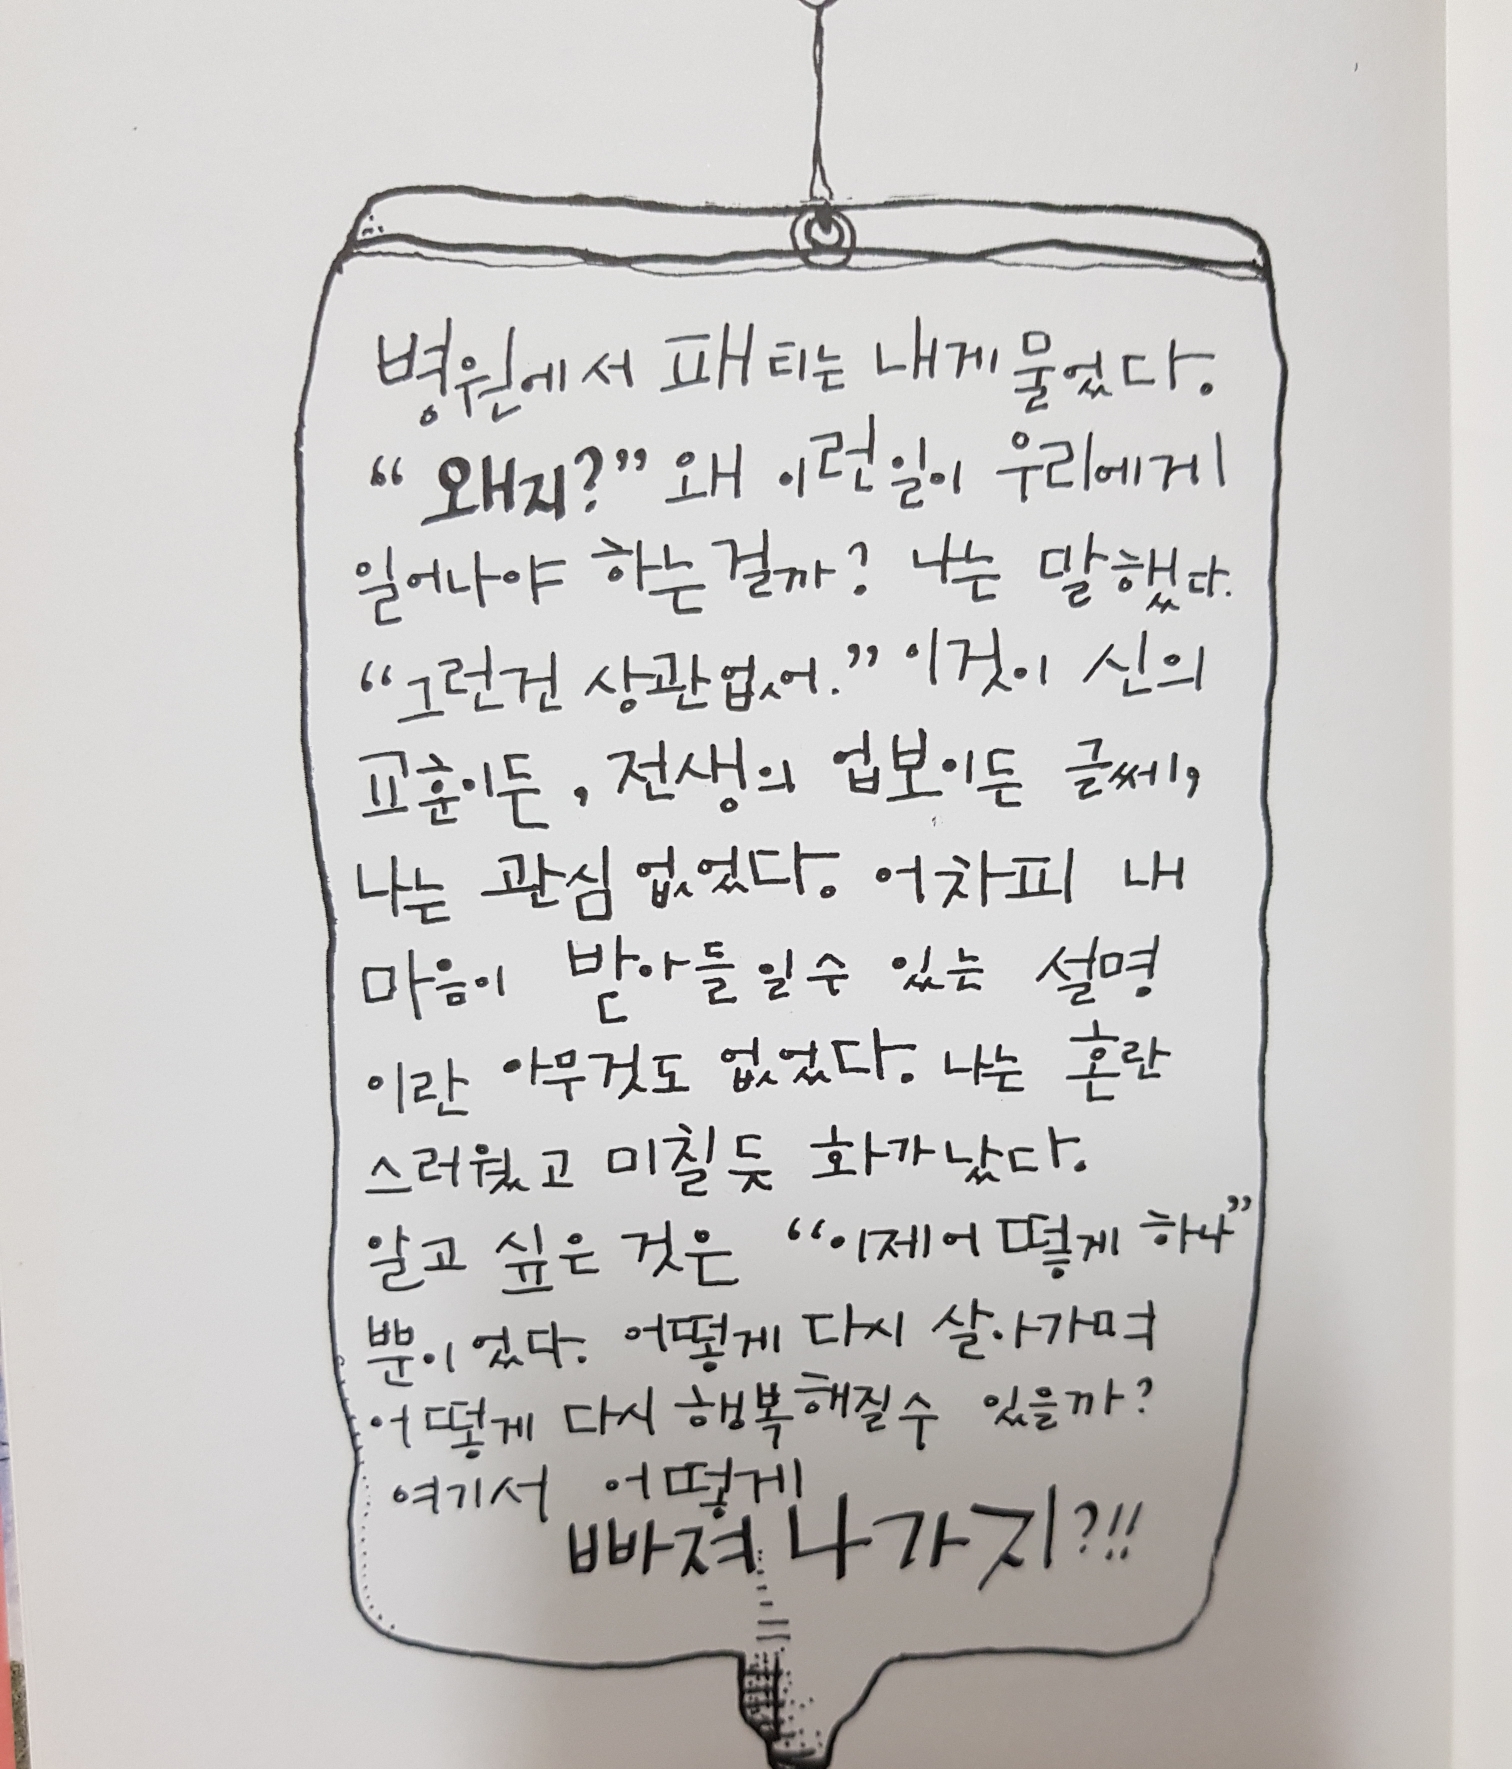 병원에서 패티는 내게 물었다.
“왜지?” 왜 이런일이 우리에게
일어나야 하는걸까? 나는 말했다.
“그런건 상관없어.” 이것이 신의
교훈이든, 전생의 업보이든 글쎄,
나는 관심없었다. 어차피 내
마음이 받아들일수 있는 설명
이란 아무것도 없었다. 나는 혼란
스러웠고 미칠듯 화가났다.
알고 싶은 것은 “이제어떻게 하나”
뿐이었다. 어떻게 다시 살아가며
어떻게 다시 행복해질수 있을까?
여기서 어떻게
빠져나가지?!!